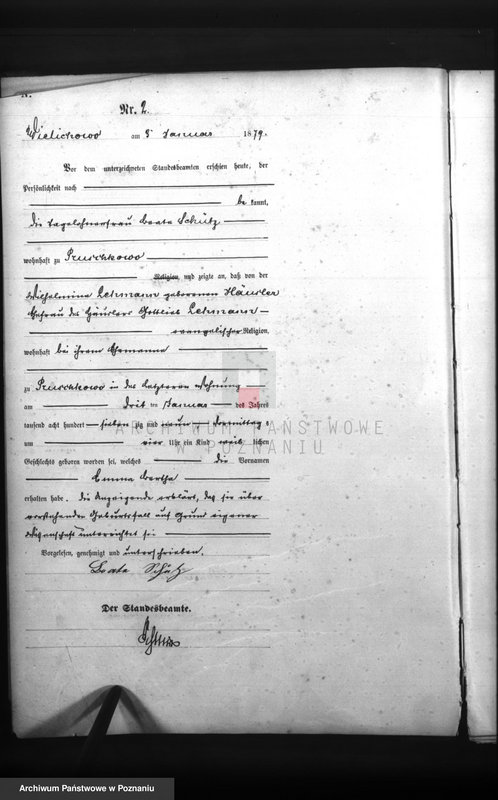 Nr. 2.
Wielichowo am 5 Januar 1879.
Vor dem unterzeichneten Standesbeamten erschien heute, der
Persönlichkeit nach
be kannt,
die Tagelöhnerfrau Beata Schütz
wohnhaft zu Pruschkowo
Religion, und zeigte an, daß von der
Wilhelmine Lehmann geborenen Häusler
Ehefrau des Häuslers Gottlieb Lehmann
evangelischer Religion,
wohnhaft bei ihrem Ehemanne
zu Pruschkowo in des Letzteren Wohnung
am drei ten Januar des Jahres
tausend acht hundert sieben zig und neun Vormittags
um vier Uhr ein Kind weib lichen
Geschlechts geboren worden sei, welches die Vornamen
Emma Bertha
erhalten habe. Die Anzeigende erklärt, daß sie über
vorstehenden Geburtsfall aus Grund eigener
Wissenschaft unterrichtet sei
Vorgelesen, genehmigt und unterschrieben.
Beate Schütz
Der Standesbeamte.
ARCHIWUM PAŃSTWOWE
W POZNANIU
Archiwum Państwowe w Poznaniu